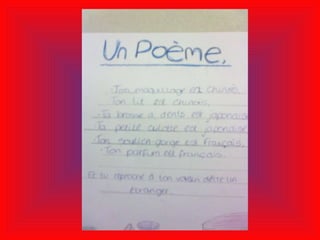 Un Poème.
Ton maquillage est chinois.
Ton lit est chinois.
Ta brosse à dents est japonaise
Ta petite culotte est japonaise
Ton soutien gorge est français.
Ton parfum est français.
Et tu reproche à ton voisin d'être un
étranger.